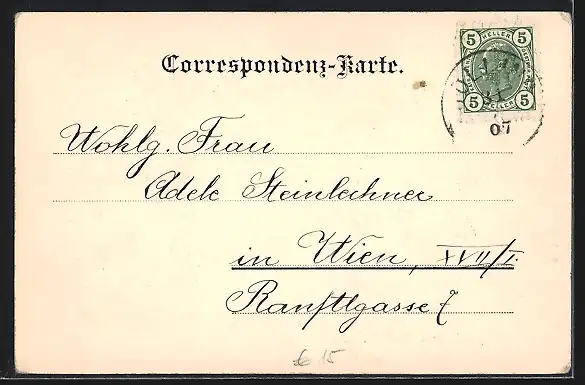 Correspondenz-Karte.
5 HELLER 5
5 HELLER 5
07
Wohlg. Frau
Adele Steinlechner
in Wien, XVII/1.
Ranftlgasse 7
15